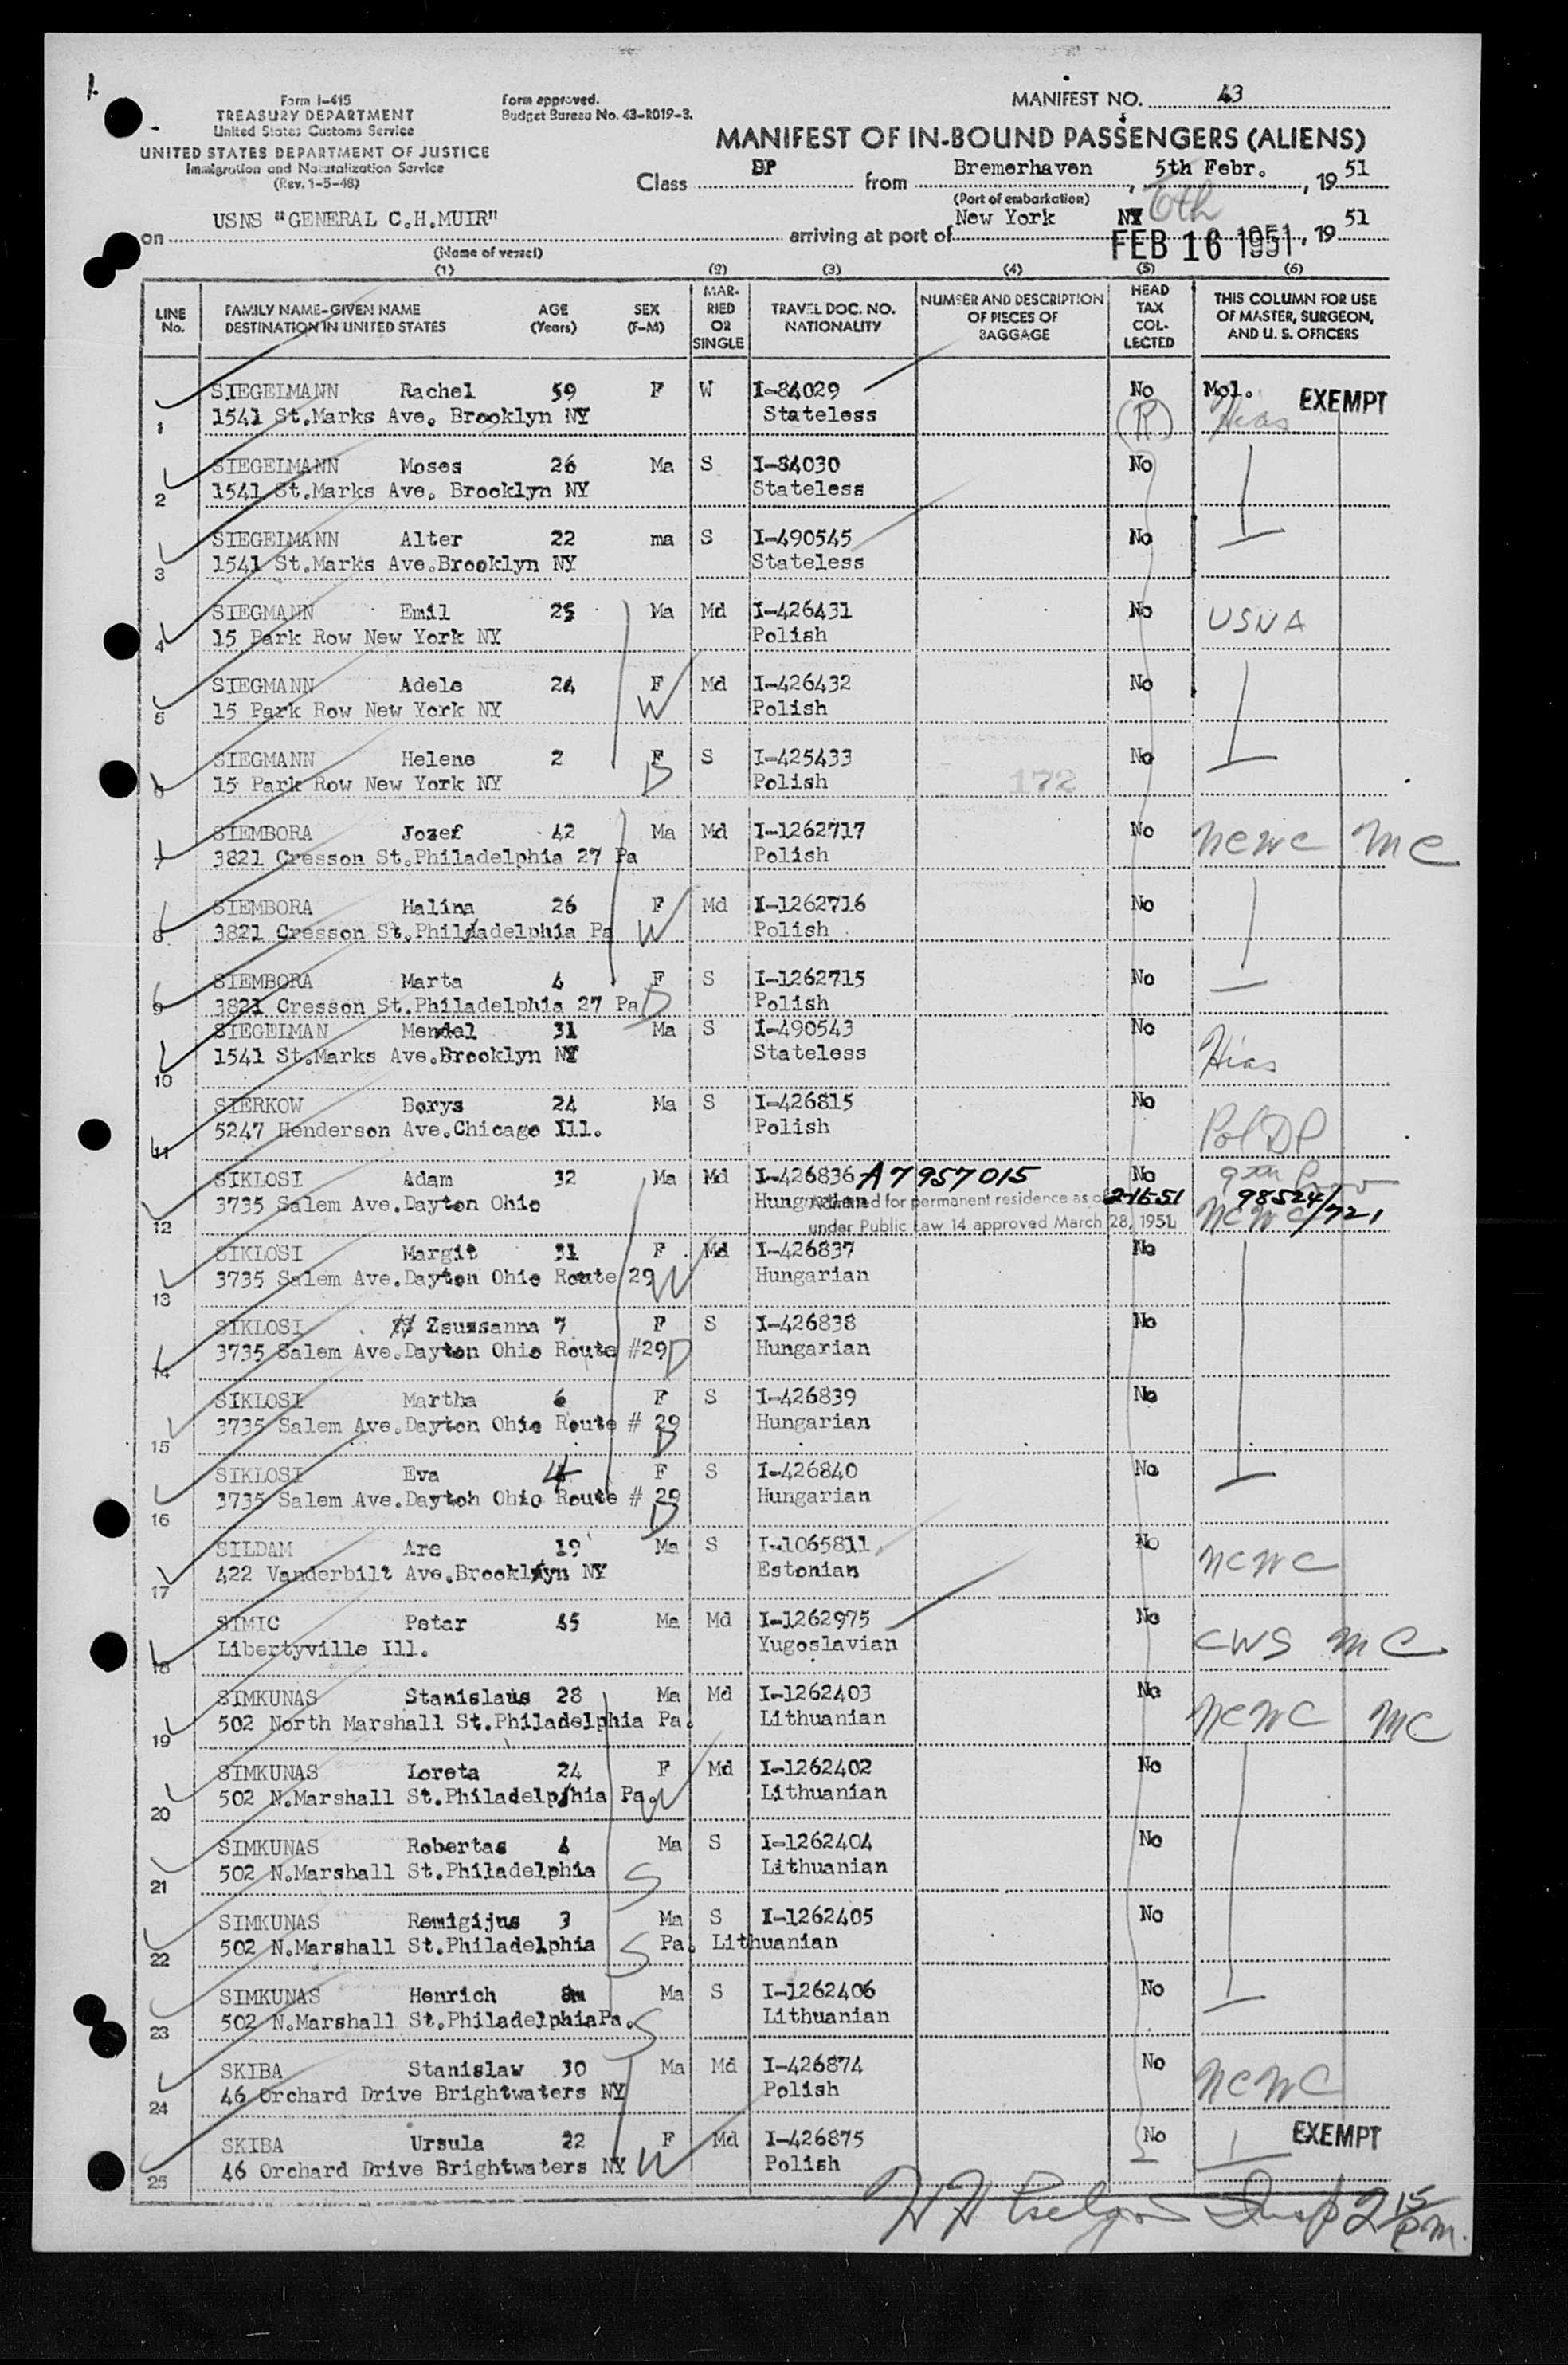 Form I-415
TREASURY DEPARTMENT
United States Customs Service
UNITED STATES DEPARTMENT OF JUSTICE
Immigration and Naturalization Service
(Rev. 1-5-48)
Form approved.
Budget Bureau No. 43-R019-3.
MANIFEST NO. 43
MANIFEST OF IN-BOUND PASSENGERS (ALIENS)
Class DP from Bremerhaven, 5th Febr., 19 51
(Port of embarkation) 6th
on USNS "GENERAL C.H.MUIR" arriving at port of New York NY FEB 16 1951, 19 51
(Name of vessel)
(1) (2) (3) (4) (5) (6)
LINE No. FAMILY NAME-GIVEN NAME DESTINATION IN UNITED STATES AGE (Years) SEX (F-M) MARRIED OR SINGLE TRAVEL DOC. NO. NATIONALITY NUMBER AND DESCRIPTION OF PIECES OF BAGGAGE HEAD TAX COLLECTED THIS COLUMN FOR USE OF MASTER, SURGEON, AND U. S. OFFICERS
SIEGELMANN Rachel 59 F W I-84029 No Mol. EXEMPT
1 1541 St.Marks Ave. Brooklyn NY Stateless (R) Hias
SIEGELMANN Moses 26 Ma S I-84030 No
2 1541 St.Marks Ave. Brooklyn NY Stateless
SIEGELMANN Alter 22 ma S I-490545 No
3 1541 St.Marks Ave.Brooklyn NY Stateless
SIEGMANN Emil 25 Ma Md I-426431 No USNA
4 15 Park Row New York NY Polish
SIEGMANN Adele 24 F Md I-426432 No
5 15 Park Row New York NY W Polish
SIEGMANN Helene 2 F S I-425433 No
6 15 Park Row New York NY D Polish 172
SIEMBORA Jozef 42 Ma Md I-1262717 No NCWC MC
7 3821 Cresson St.Philadelphia 27 Pa Polish
SIEMBORA Halina 26 F Md I-1262716 No
8 3821 Cresson St.Philadelphia Pa W Polish
SIEMBORA Marta 4 F S I-1262715 No
9 3821 Cresson St.Philadelphia 27 Pa D Polish
SIEGELMAN Mendel 31 Ma S I-490543 No
10 1541 St.Marks Ave.Brooklyn NY Stateless Hias
SIERKOW Borys 24 Ma S I-426815 No
11 5247 Henderson Ave.Chicago Ill. Polish Pol DP
SIKLOSI Adam 32 Ma Md I-426836 A7957015 No 9th Prov
12 3735 Salem Ave.Dayton Ohio Hungarian Admitted for permanent residence as of 2-16-51 98524/721
under Public Law 14 approved March 28, 1951 NCWC
SIKLOSI Margit 31 F Md I-426837 No
13 3735 Salem Ave.Dayton Ohio Route 29 W Hungarian
SIKLOSI Zsuzsanna 7 F S I-426838 No
14 3735 Salem Ave.Dayton Ohio Route #29 D Hungarian
SIKLOSI Martha 6 F S I-426839 No
15 3735 Salem Ave.Dayton Ohio Route # 29 D Hungarian
SIKLOSI Eva 4 F S I-426840 No
16 3735 Salem Ave.Dayton Ohio Route # 29 D Hungarian
SILDAM Are 19 Ma S I-1065811 No NCWC
17 422 Vanderbilt Ave.Brooklyn NY Estonian
SIMIC Petar 45 Ma Md I-1262975 No
18 Libertyville Ill. Yugoslavian CWS MC
SIMKUNAS Stanislaus 28 Ma Md I-1262403 No
19 502 North Marshall St.Philadelphia Pa. Lithuanian NCWC MC
SIMKUNAS Loreta 24 F Md I-1262402 No
20 502 N.Marshall St.Philadelphia Pa. W Lithuanian
SIMKUNAS Robertas 4 Ma S I-1262404 No
21 502 N.Marshall St.Philadelphia S Lithuanian
SIMKUNAS Remigijus 3 Ma S I-1262405 No
22 502 N.Marshall St.Philadelphia S Pa. Lithuanian
SIMKUNAS Henrich 8m Ma S I-1262406 No
23 502 N.Marshall St.PhiladelphiaPa. S Lithuanian
SKIBA Stanislaw 30 Ma Md I-426874 No
24 46 Orchard Drive Brightwaters NY Polish NCWC
SKIBA Ursula 22 F Md I-426875 No EXEMPT
25 46 Orchard Drive Brightwaters NY W Polish
Insp 2 15/PM.